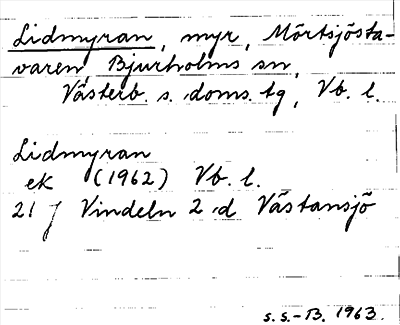 Lidmyran, myr, Mörtsjösta-
varen, Bjurholms sn,
Västerb. s. doms. tg, Vb. l.
Lidmyran
ek (1962) Vb. l.
21 J Vindeln 2 d Västansjö
s. s.-B. 1963.